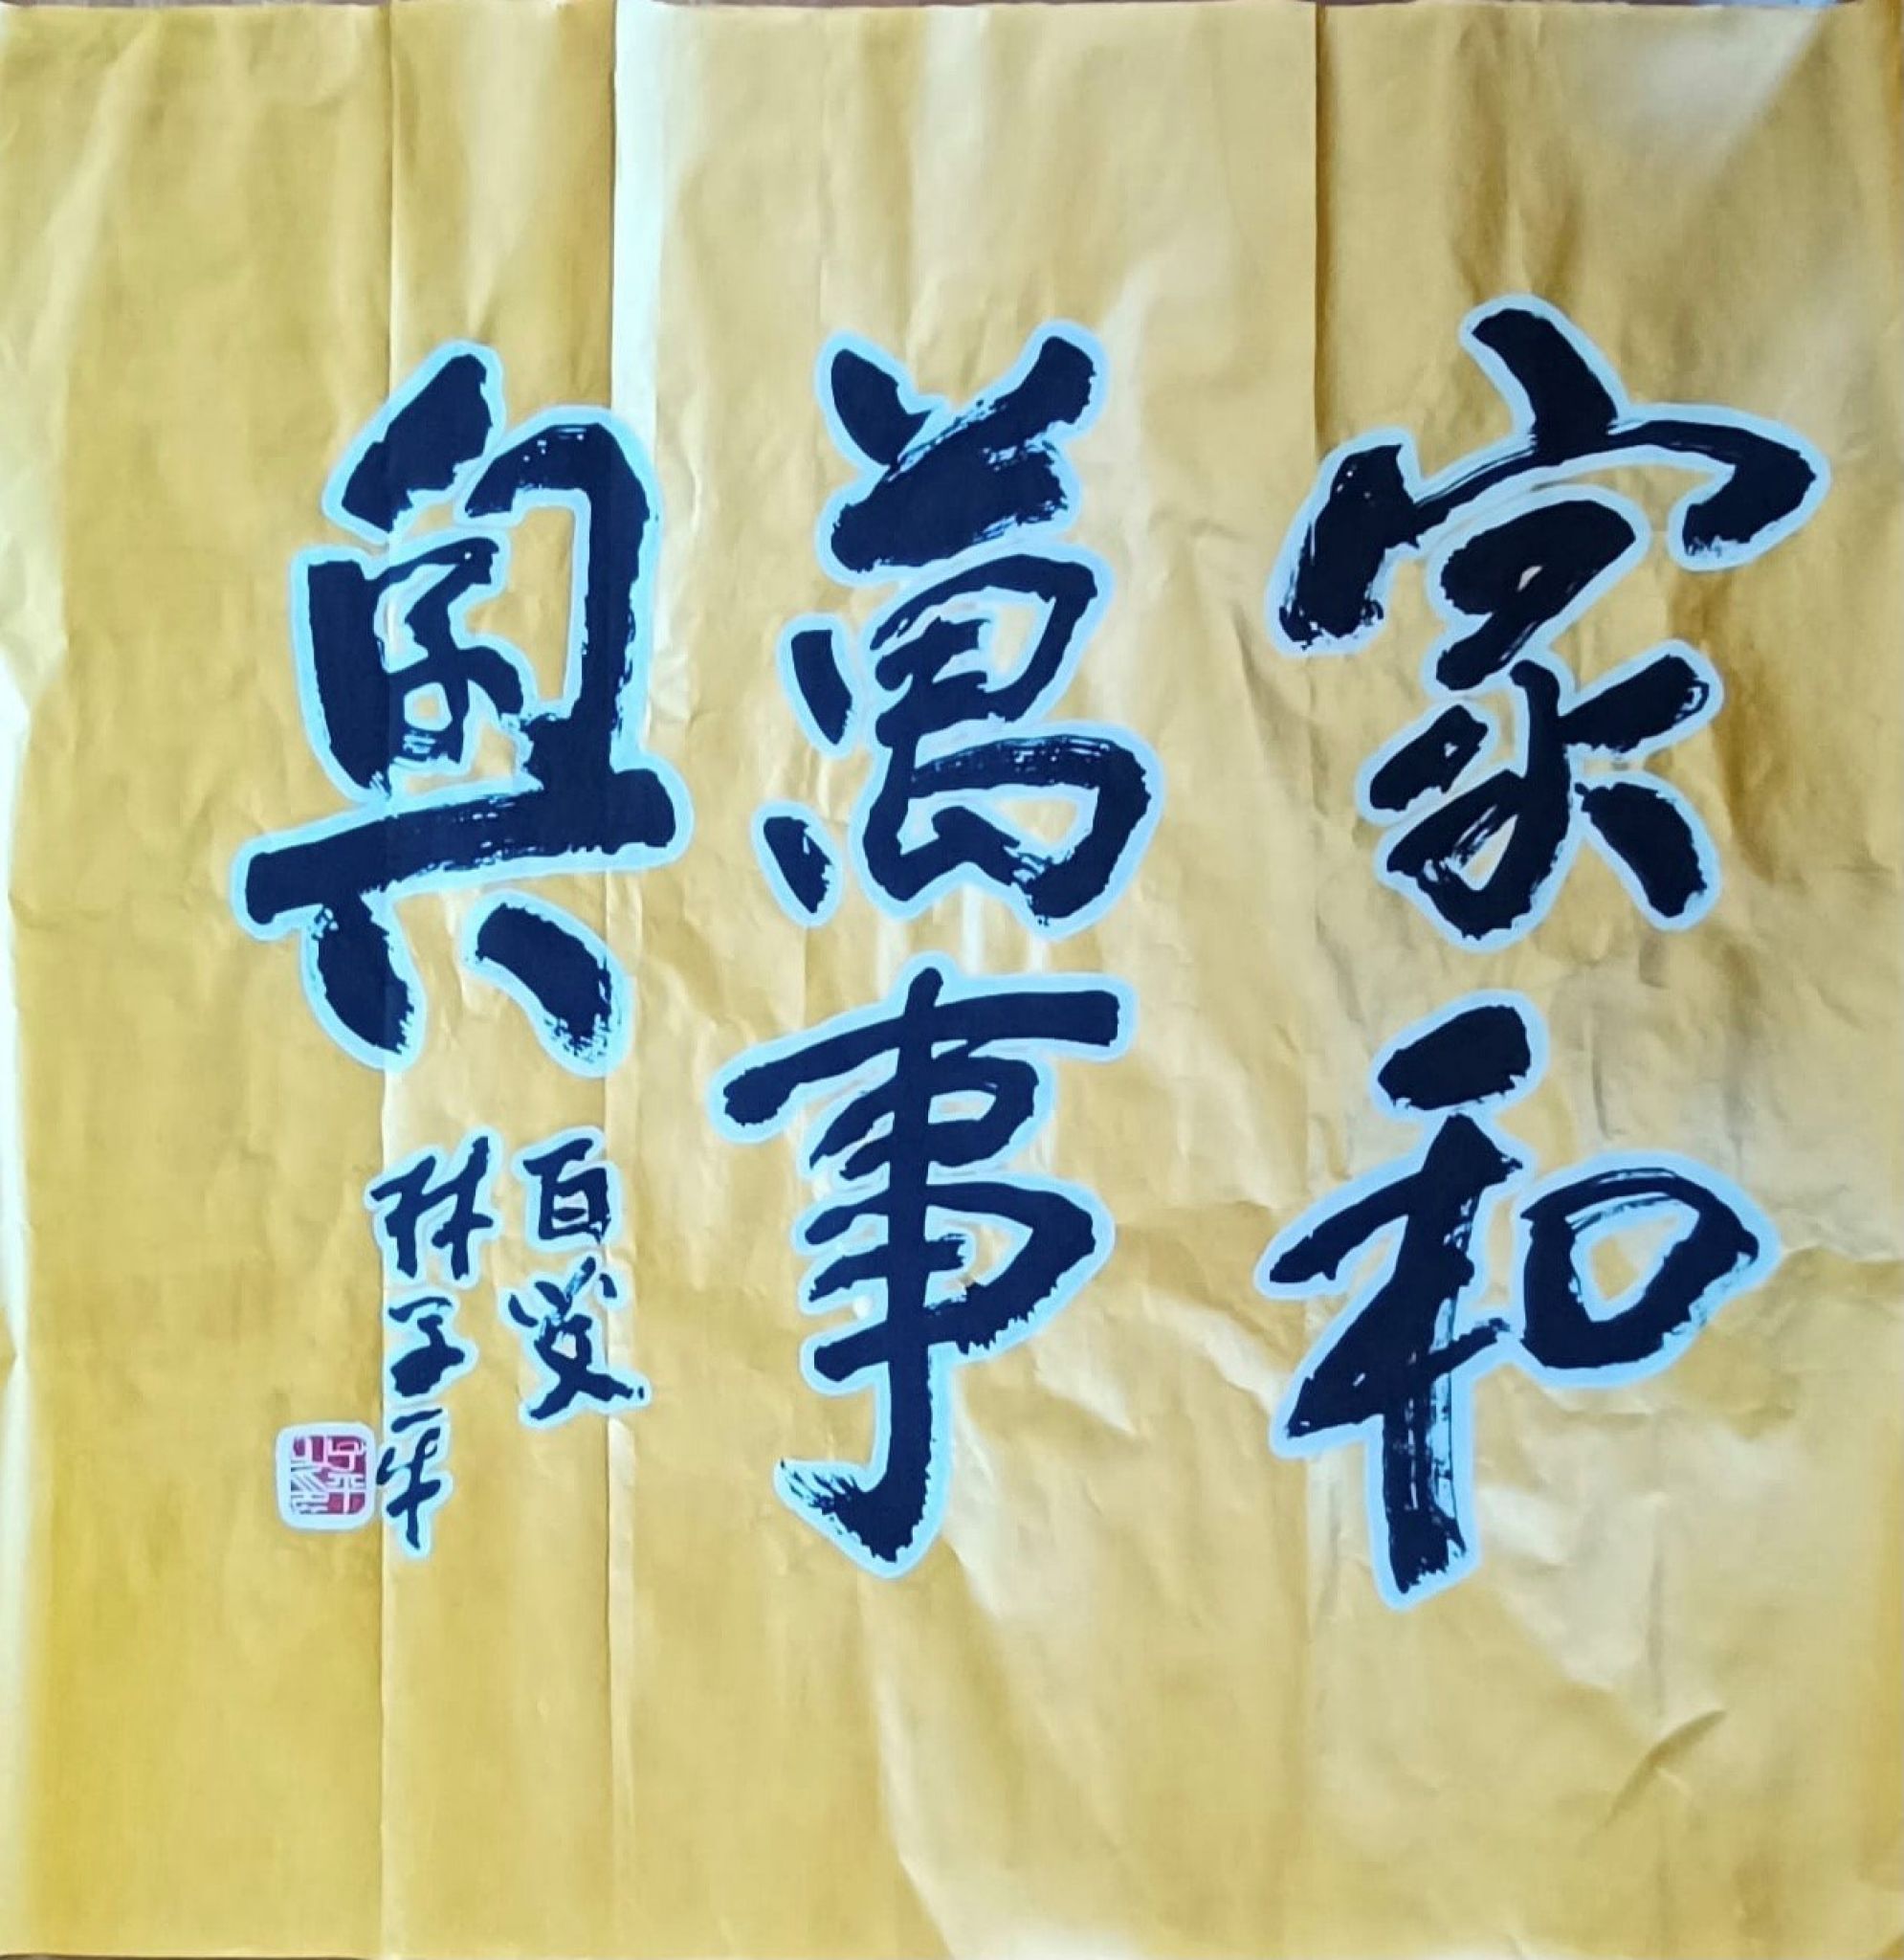 家和
萬事
興
百發
林子平